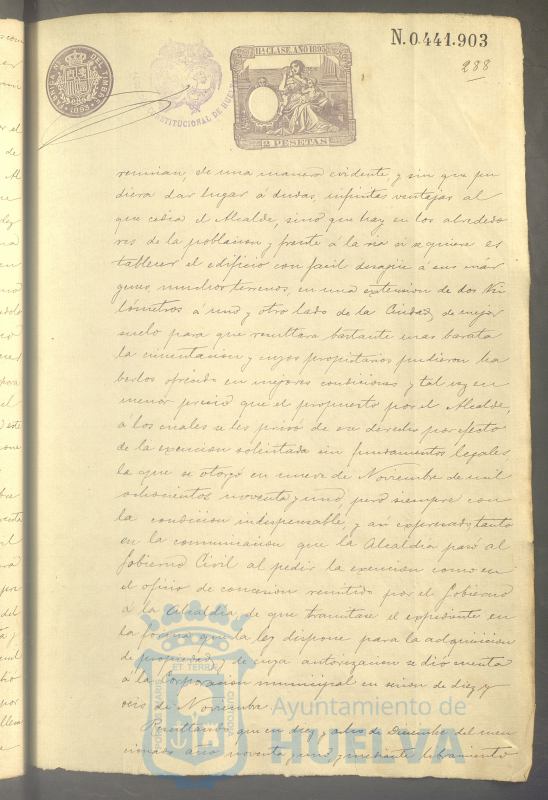 N. 0.441.903
288
DEL TIMBRE
1895
CONSTITUCIONAL DE HUELVA
11ª CLASE. AÑO 1895
2 PESETAS
reunian, de una manera evidente, y sin que pu
diera dar lugar á dudas, infinitas ventajas al
que cedia el Alcalde, sino que hay en los alrededo
res de la poblacion y frente á la ria si se quiere es
tablecer el edificio con facil desagüe á sus már
genes, muchos terrenos, en una extension de dos Ki
lómetros á uno y otro lado de la Ciudad, de mejor
suelo para que resultara bastante mas barata
la cimentacion y cuyos propietarios pudieron ha
berlos ofrecido en mejores condiciones y tal vez en
menor precio que el propuesto por el Alcalde,
á los cuales se les privó de su derecho por efecto
de la exencion solicitada sin fundamentos legales,
la que se otorgó en nueve de Noviembre de mil
ochocientos noventa y uno, pero siempre con
la condicion indispensable, y asi expresado, tanto
en la comunicacion que la Alcaldia pasó al
Gobierno Civil al pedir la exencion como en
el oficio de concesion remitido por el Gobierno
á la Alcaldia, de que tramitase el expediente en
la forma que la ley dispone para la adquisicion
de propiedad, de cuya autorizacion se dió cuenta
á la Corporacion municipal en sesion de diez y
seis de Noviembre.
Resultando que en diez y ocho de Diciembre del men
cionado año noventa y uno, y mediante libramiento
PORTUS MARIS
ET TERRÆ
CUSTODIA
Ayuntamiento de
HUELVA